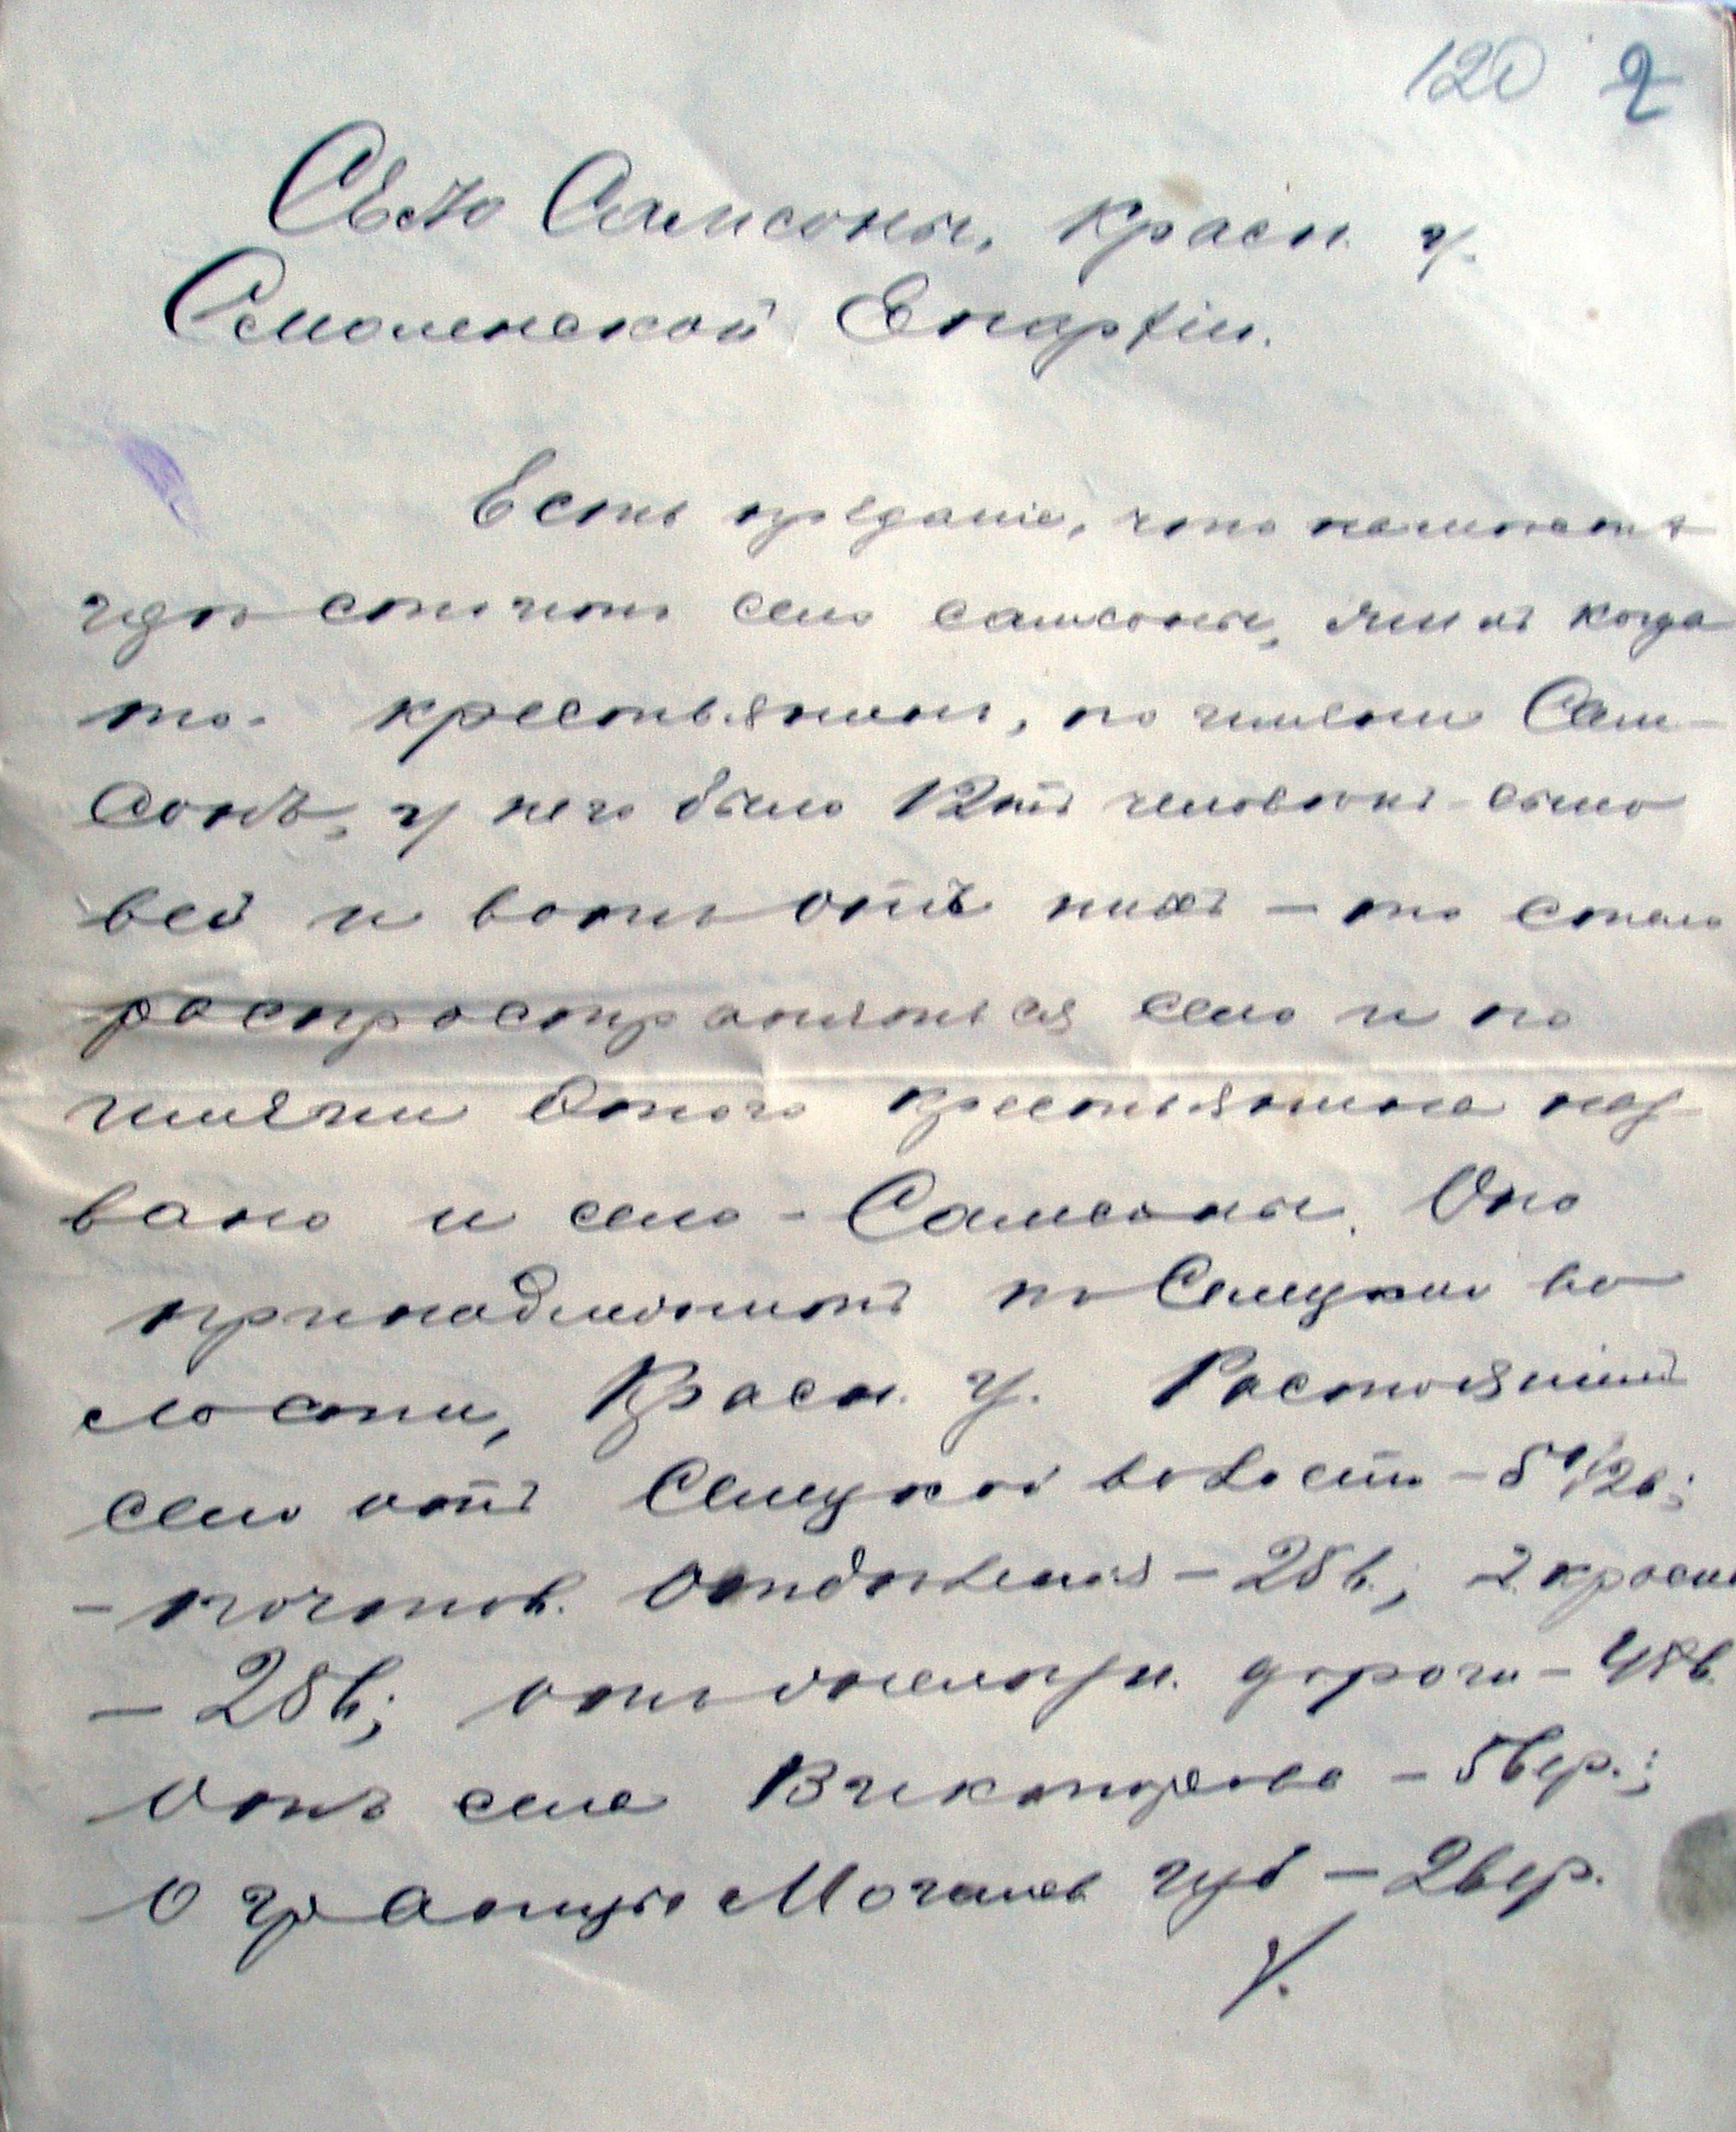 120 2
Село Самсоны, Красн. у.
Смоленской Епархіи.
Есть преданіе, что на
гдѣ стоитъ село Самсоны, жилъ когда
то крестьянинъ, по имени Сам-
сонъ, у него было 12ть человѣкъ сыно
вей и вотъ отъ нихъ – то стало
распространяться село и по
имени этого крестьянина наз
вано и село – Самсоны. Оно
принадлежитъ къ Селецкой во
лости, Красн. у. Расстояніемъ
село отъ Селецкой волости – 5 1/2 в.;
– почтов. отдѣленія – 28 в.; г. Красн
– 28 в.; отъ желѣзн. дороги – 48 в.
Отъ села Викторова – 5 вер.;
О границы Могилев губ – 2 вер.